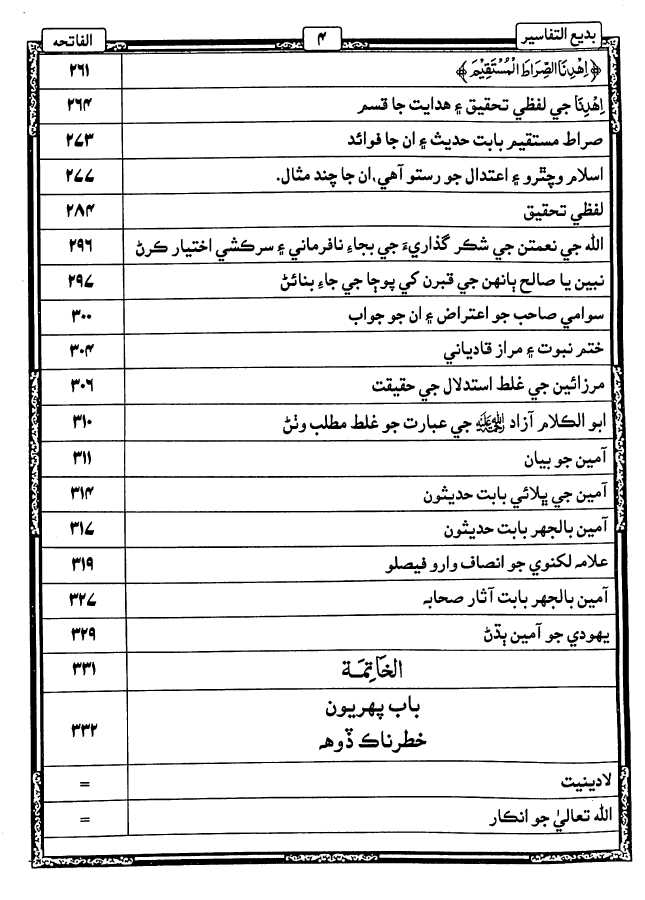 بديع التفاسير
۴
الفاتحه
﴿اِهْدِنَا الصِّرَاطَ الْمُسْتَقِيْمَ﴾ ۲۶۱
اِهْدِنَا جي لفظي تحقيق ۽ هدايت جا قسم ۲۶۴
صراط مستقيم بابت حديث ۽ ان جا فوائد ۲۷۳
اسلام وچٿرو ۽ اعتدال جو رستو آهي، ان جا چند مثال. ۲۷۷
لفظي تحقيق ۲۸۴
الله جي نعمتن جي شڪر گذاريءَ جي بجاءِ نافرماني ۽ سرڪشي اختيار ڪرڻ ۲۹۶
نبين يا صالح ٻانهن جي قبرن کي پوڄا جي جاءِ بنائڻ ۲۹۷
سوامي صاحب جو اعتراض ۽ ان جو جواب ۳۰۰
ختم نبوت ۽ مراز قادياني ۳۰۴
مرزائين جي غلط استدلال جي حقيقت ۳۰۶
ابو الڪلام آزاد رحمه الله جي عبارت جو غلط مطلب وٺڻ ۳۱۰
آمين جو بيان ۳۱۱
آمين جي ڀلائي بابت حديثون ۳۱۴
آمين بالجهر بابت حديثون ۳۱۷
علامہ لکنوي جو انصاف وارو فيصلو ۳۱۹
آمين بالجهر بابت آثار صحابہ ۳۲۷
يهودي جو آمين ٻڌڻ ۳۲۹
الخَاتِمَة ۳۳۱
باب پهريون
خطرناڪ ڏوهہ ۳۳۲
لادينيت =
الله تعاليٰ جو انڪار =